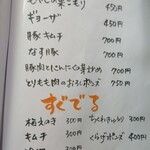 ギョーザ 450円
豚キムチ 700円
なす豚 700円
豚肉とにんにくの芽炒め 700円
とりもも肉のおろしポンズ 750円
すぐでる
梅えのき 300円
キムチ 300円
くらげポンズ 400円